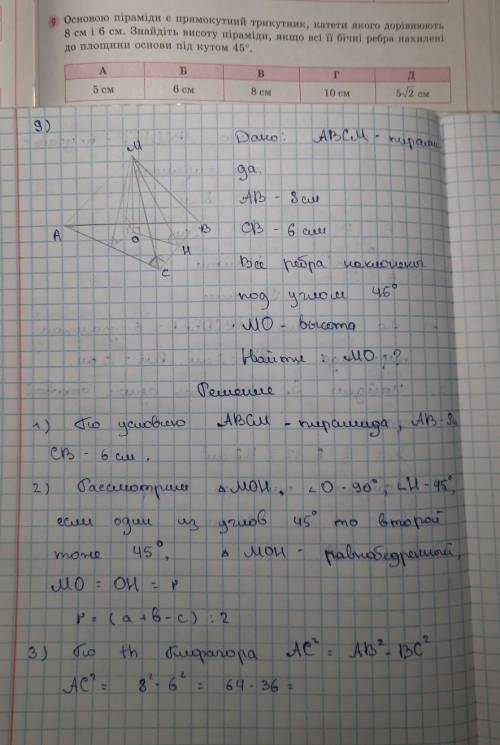 9 Основою піраміди є прямокутний трикутник, катети якого дорівнюють
8 см і 6 см. Знайдіть висоту піраміди, якщо всі її бічні ребра нахилені
до площини основи під кутом 45°.
А Б В Г Д
5 см 6 см 8 см 10 см 5√2 см
9)
Дано: ABCM - пирами
да.
AB - 8 см
CB - 6 см
Все ребра наклонены
под углом 45°
MO - высота
Найти: MO - ?
M
A
O
B
H
C
Решение
1) По условию ABCM - пирамида, AB - 8
CB - 6 см.
2) Рассмотрим △MOH, ∠O - 90°, ∠H - 45°,
если один из углов 45° то второй
тоже 45°, △ MOH - равнобедренный,
MO = OH = r
r = (a + b - c) : 2
3) По th Пифагора AC² = AB² - BC²
AC² = 8² - 6² = 64 - 36 =